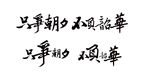 只爭朝夕 不負韶華
只爭朝夕 不負韶華